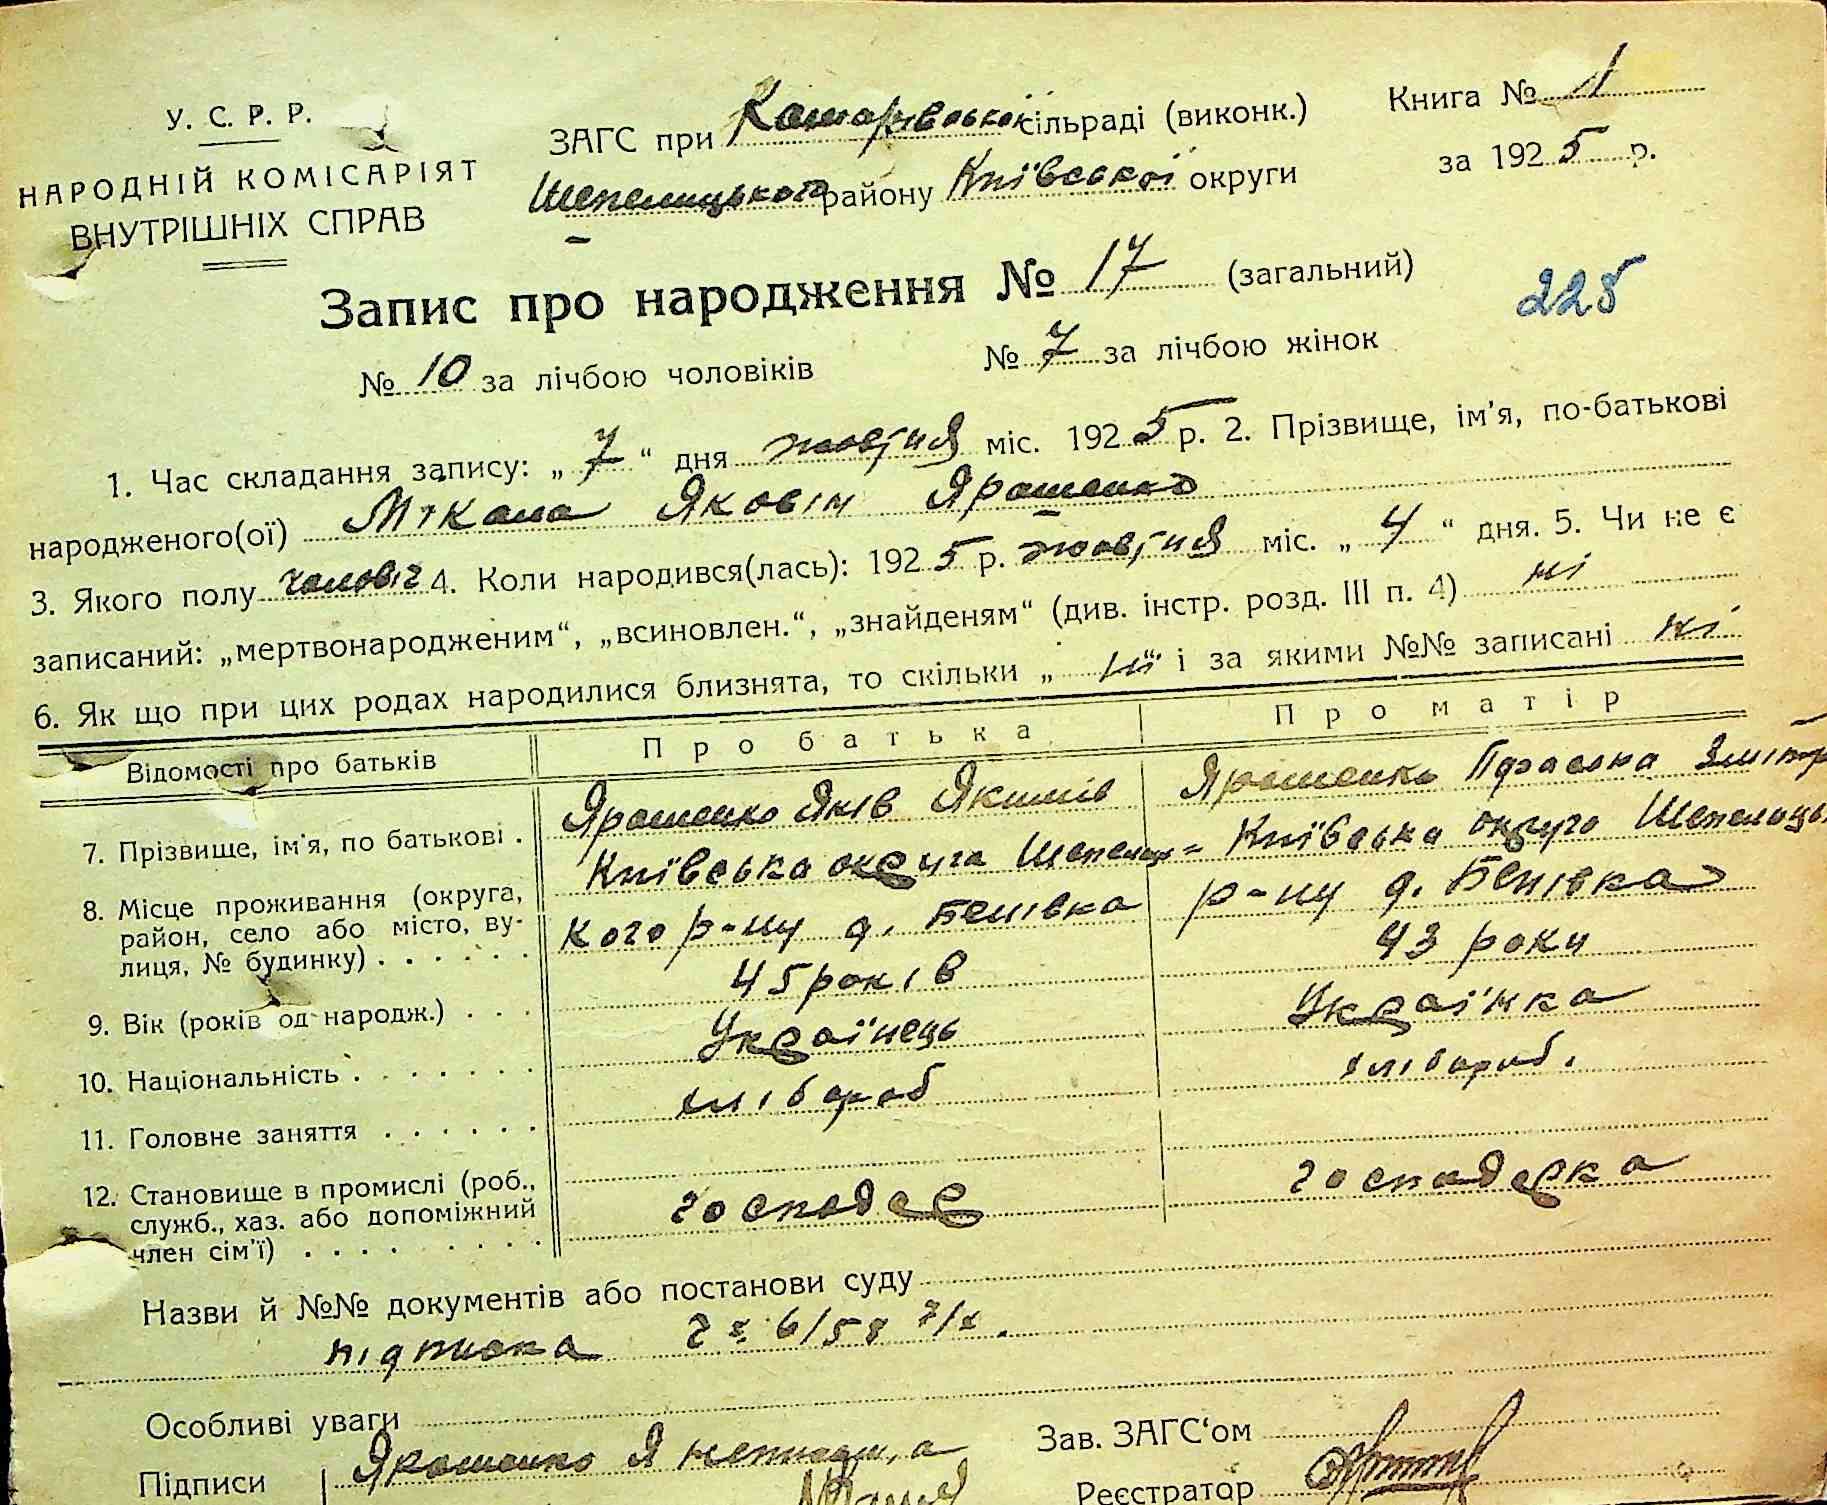 У. С. Р. Р.
НАРОДНІЙ КОМІСАРІЯТ
ВНУТРІШНІХ СПРАВ
ЗАГС при Кошарівської сільраді (виконк.)
Шепелицького району Київської округи
Книга № 1
за 1925 р.
Запис про народження № 17 (загальний)
225
№ 10 за лічбою чоловіків № 7 за лічбою жінок
1. Час складання запису: „ 7 “ дня жовтня міс. 1925 р. 2. Прізвище, ім'я, по-батькові
народженого(ої) Мікола Яковів Ярошенко
3. Якого полу чоловіч 4. Коли народився(лась): 1925 р. жовтня міс. „ 4 “ дня. 5. Чи не є
записаний: „мертвонародженим“, „всиновлен.“, „знайденям“ (див. інстр. розд. III п. 4) ні
6. Як що при цих родах народилися близнята, то скільки „ ні “ і за якими №№ записані ні
Відомості про батьків Про батька Про матір
7. Прізвище, ім'я, по батькові . Ярошенко Яків Якимів Ярошенко Параска Змітр
8. Місце проживання (округа, район, село або місто, вулиця, № будинку) . . . . . .
Київська округа Шепелиць= Київська округа Шепелиць
кого р-ну д. Бенівка р-ну д. Бенівка
9. Вік (років од народж.) . . . 45 років 43 роки
10. Національність . . . . . . . Українець Українка
11. Головне заняття . . . . . . хлібороб хлібороб.
12. Становище в промислі (роб., служб., хаз. або допоміжний член сім'ї) . . . . . . . . .
господар господарка
Назви й №№ документів або постанови суду
підписка
Особливі уваги
Підписи Ярошенко Я неписьм,а
Зав. ЗАГС'ом
Реєстратор